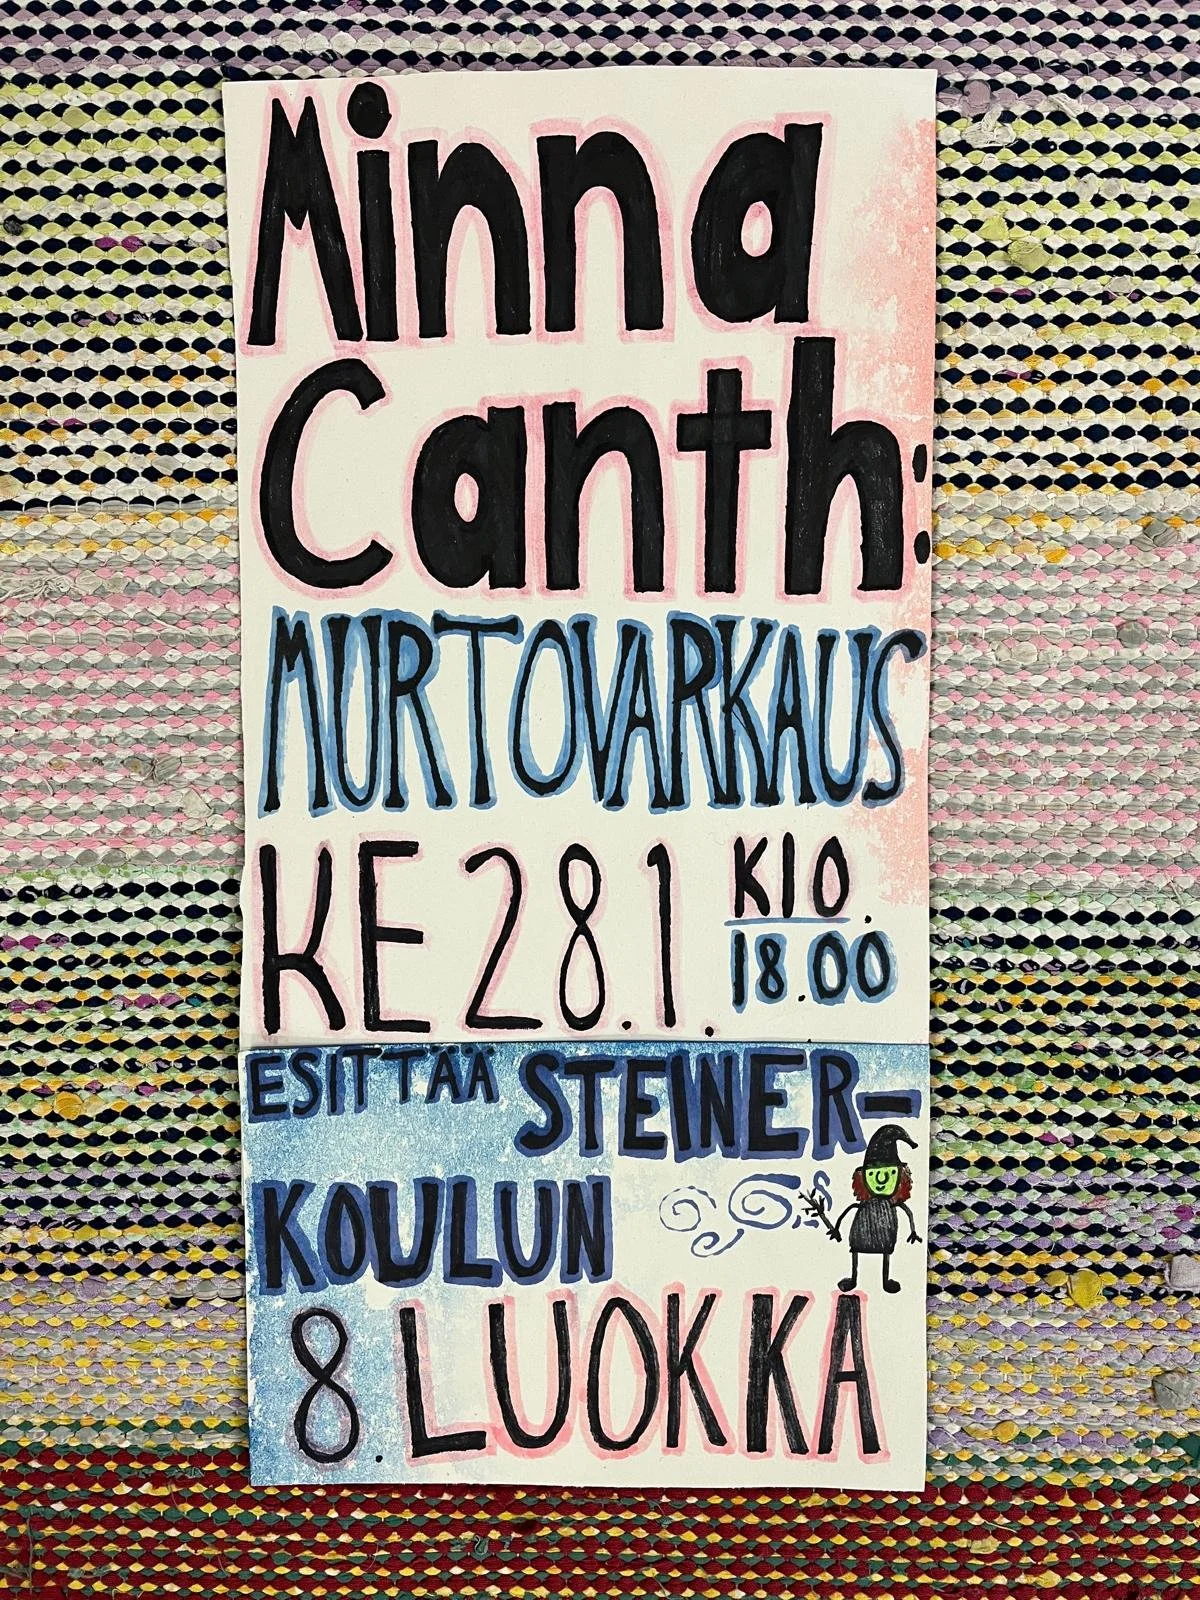 Minna
Canth:
MURTOVARKAUS
KE 28.1. KLO.
18.00
ESITTÄÄ STEINER-
KOULUN
8. LUOKKA